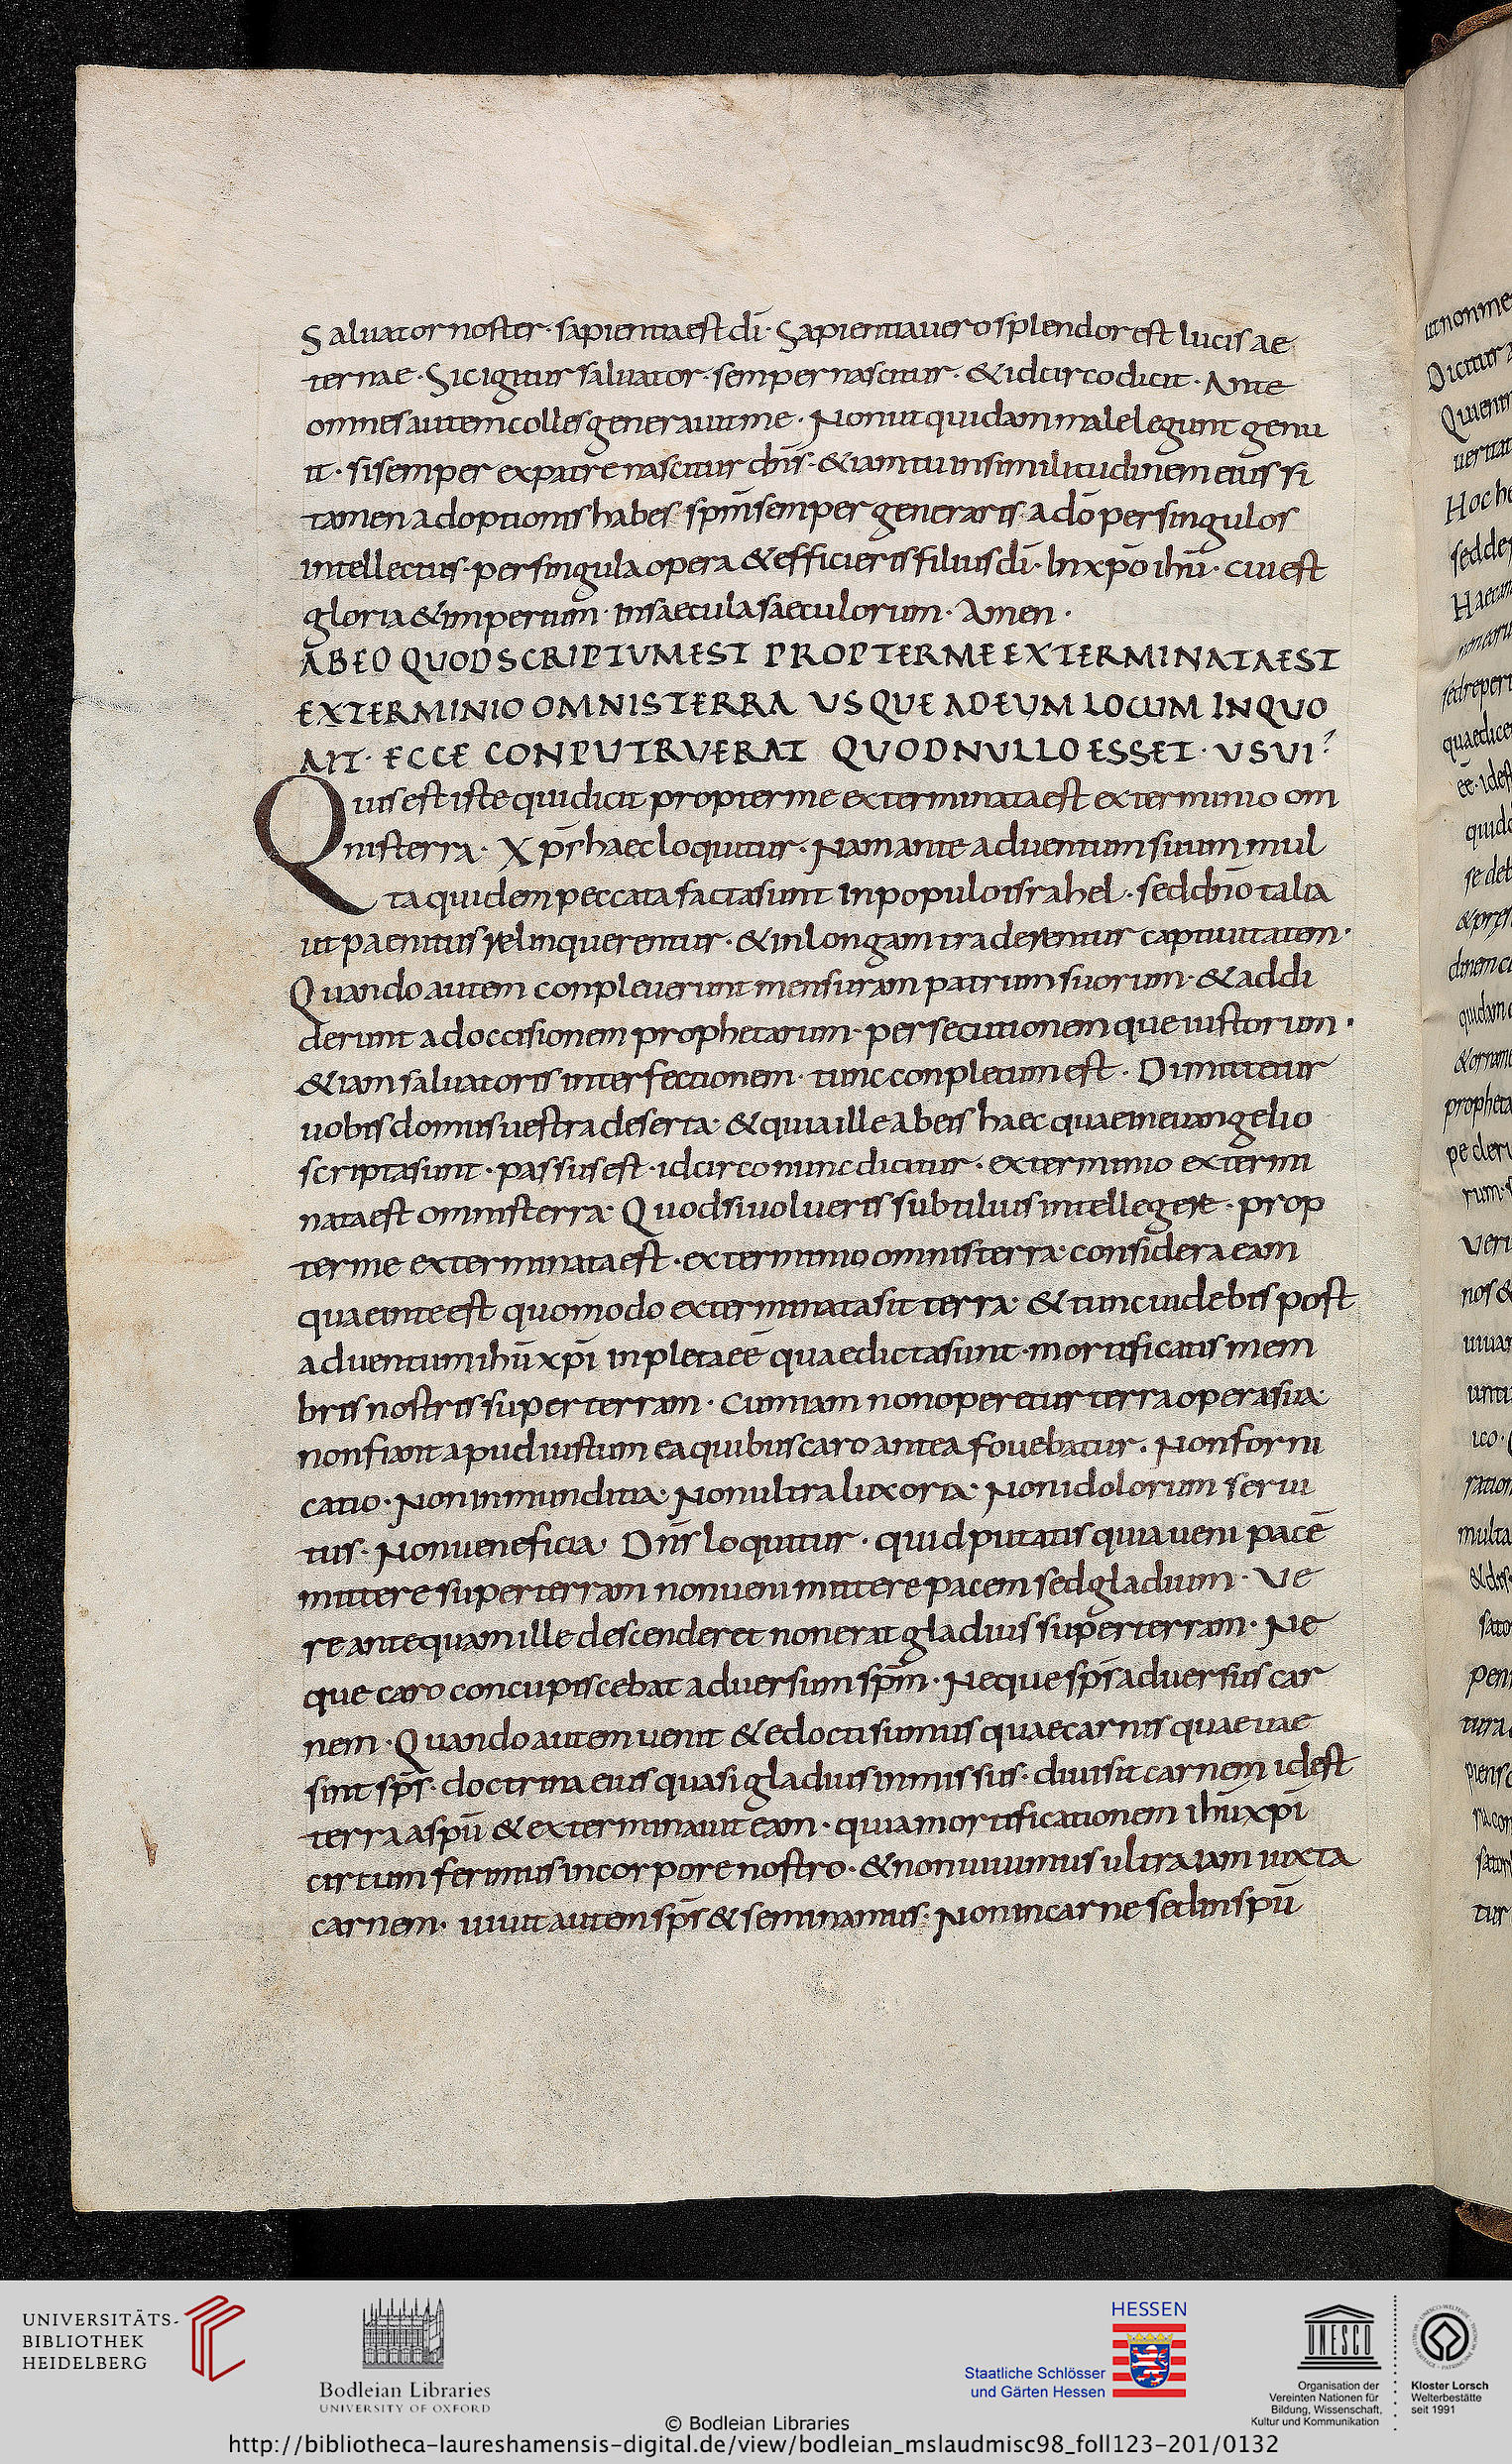 Saluator noster · sapientia est dī · Sapientia uero splendor est lucis ae
ternae · Sic igitur saluator · semper nascitur · & idcirco dicit · Ante
omnes autem colles generauit me · Non ut quidam male legunt genu
it · si semper ex patre nascitur dn̄s · & iam tu in similitudinem eius si
tamen adoptionis habes sp̄m semper generaris a dō per singulos
intellectus · per singula opera & efficieris filius dī · In xp̄o ihū · cui est
gloria & imperium · in saecula saeculorum · Amen ·
AB EO QUOD SCRIPTUM EST PROPTER ME EXTERMINATA EST
EXTERMINIO OMNIS TERRA USQUE AD EUM LOCUM IN QUO
AIT · ECCE CONPUTRUERAT QUOD NULLO ESSET · USUI
Quis est iste qui dicit propter me exterminata est exterminio om
nis terra · Xp̄s haec loquitur · Nam ante aduentum suum mul
ta quidem peccata facta sunt in populo israhel · sed non talia
ut paenitus relinquerentur · & in longam traderentur captiuitatem ·
Quando autem conpleuerunt mensuram patrum suorum · & addi
derunt ad occisionem prophetarum · persecutionem que iustorum ·
& iam saluatoris interfectionem · tunc conpletum est · Dimittetur
uobis domus uestra deserta · & quia ille ab eis haec quae in euangelio
scripta sunt · passus est · idcirco nunc dicitur · exterminio extermi
nata est omnis terra · Quod si uolueris subtilius intellegere · prop
ter me exterminata est · exterminio omnis terra · considera eam
quae in te est quomodo exterminata sit terra · & tunc uidebis post
aduentum ihū xp̄i inpleta eē quae dicta sunt · mortificatis mem
bris nostris super terram · cum iam non operetur terra opera sua ·
non fiant apud iustum ea quibus caro antea fouebatur · Non forni
catio · Non inmunditia · Non ultra luxoria · Non idolorum serui
tus · Non ueneficia · Dn̄s loquitur · quid putatis quia ueni pacē
mittere super terram non ueni mittere pacem sed gladium · Ve
re antequam ille descenderet non erat gladius super terram · Ne
que caro concupiscebat aduersum sp̄m · Neque sp̄s aduersus car
nem · Quando autem uenit & edocti sumus quae carnis quaeuae
sint sp̄s · doctrina eius quasi gladius inmissus · diuisit carnem id est
terra a spū & exterminauit eam · quia mortificationem ihū xp̄i
circumferimus in corpore nostro · & non uiuimus ultra iam iuxta
carnem · uiuit autem sp̄s & seminamus · Non in carne sed in spū
UNIVERSITÄTS-
BIBLIOTHEK
HEIDELBERG
Bodleian Libraries
UNIVERSITY OF OXFORD
HESSEN
Staatliche Schlösser
und Gärten Hessen
UNESCO
Organisation der
Vereinten Nationen für
Bildung, Wissenschaft,
Kultur und Kommunikation
Kloster Lorsch
Welterbestätte
seit 1991
© Bodleian Libraries
http://bibliotheca-laureshamensis-digital.de/view/bodleian_mslaudmisc98_foll123-201/0132